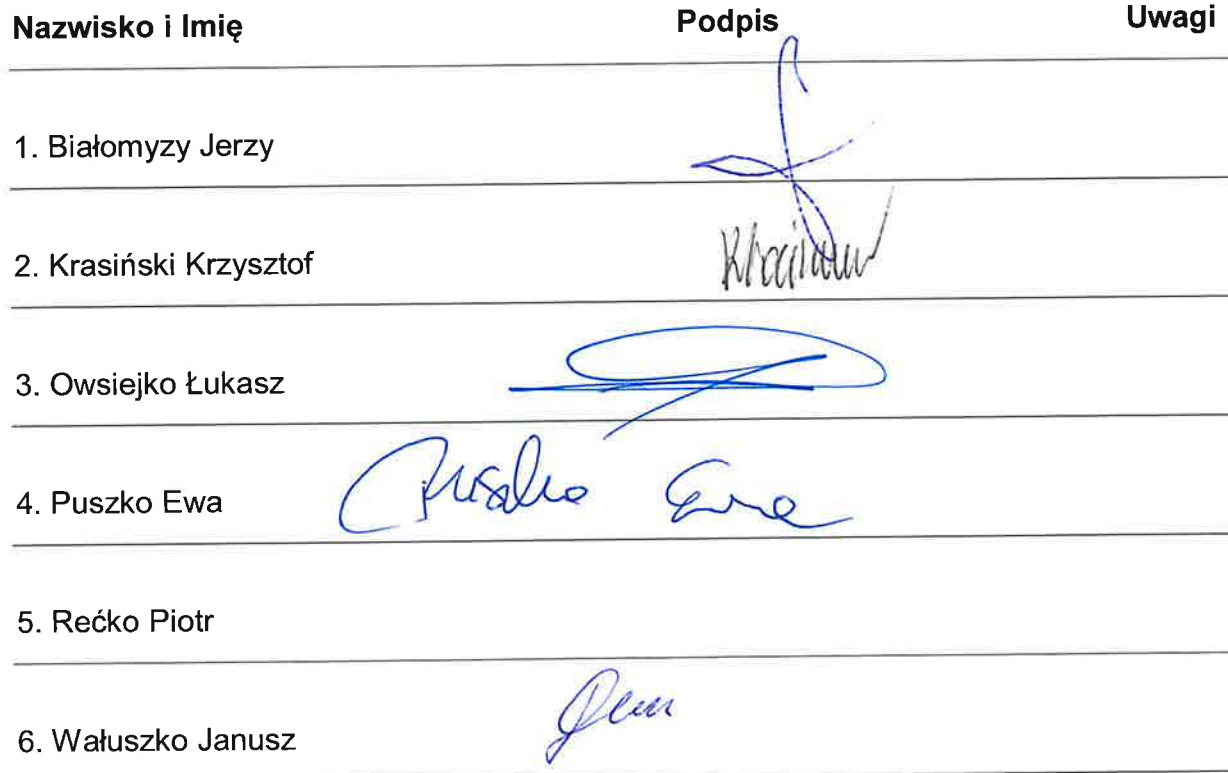 Nazwisko i Imię Podpis Uwagi
1. Białomyzy Jerzy
2. Krasiński Krzysztof
3. Owsiejko Łukasz
4. Puszko Ewa Puszko Ewa
5. Rećko Piotr
6. Wałuszko Janusz